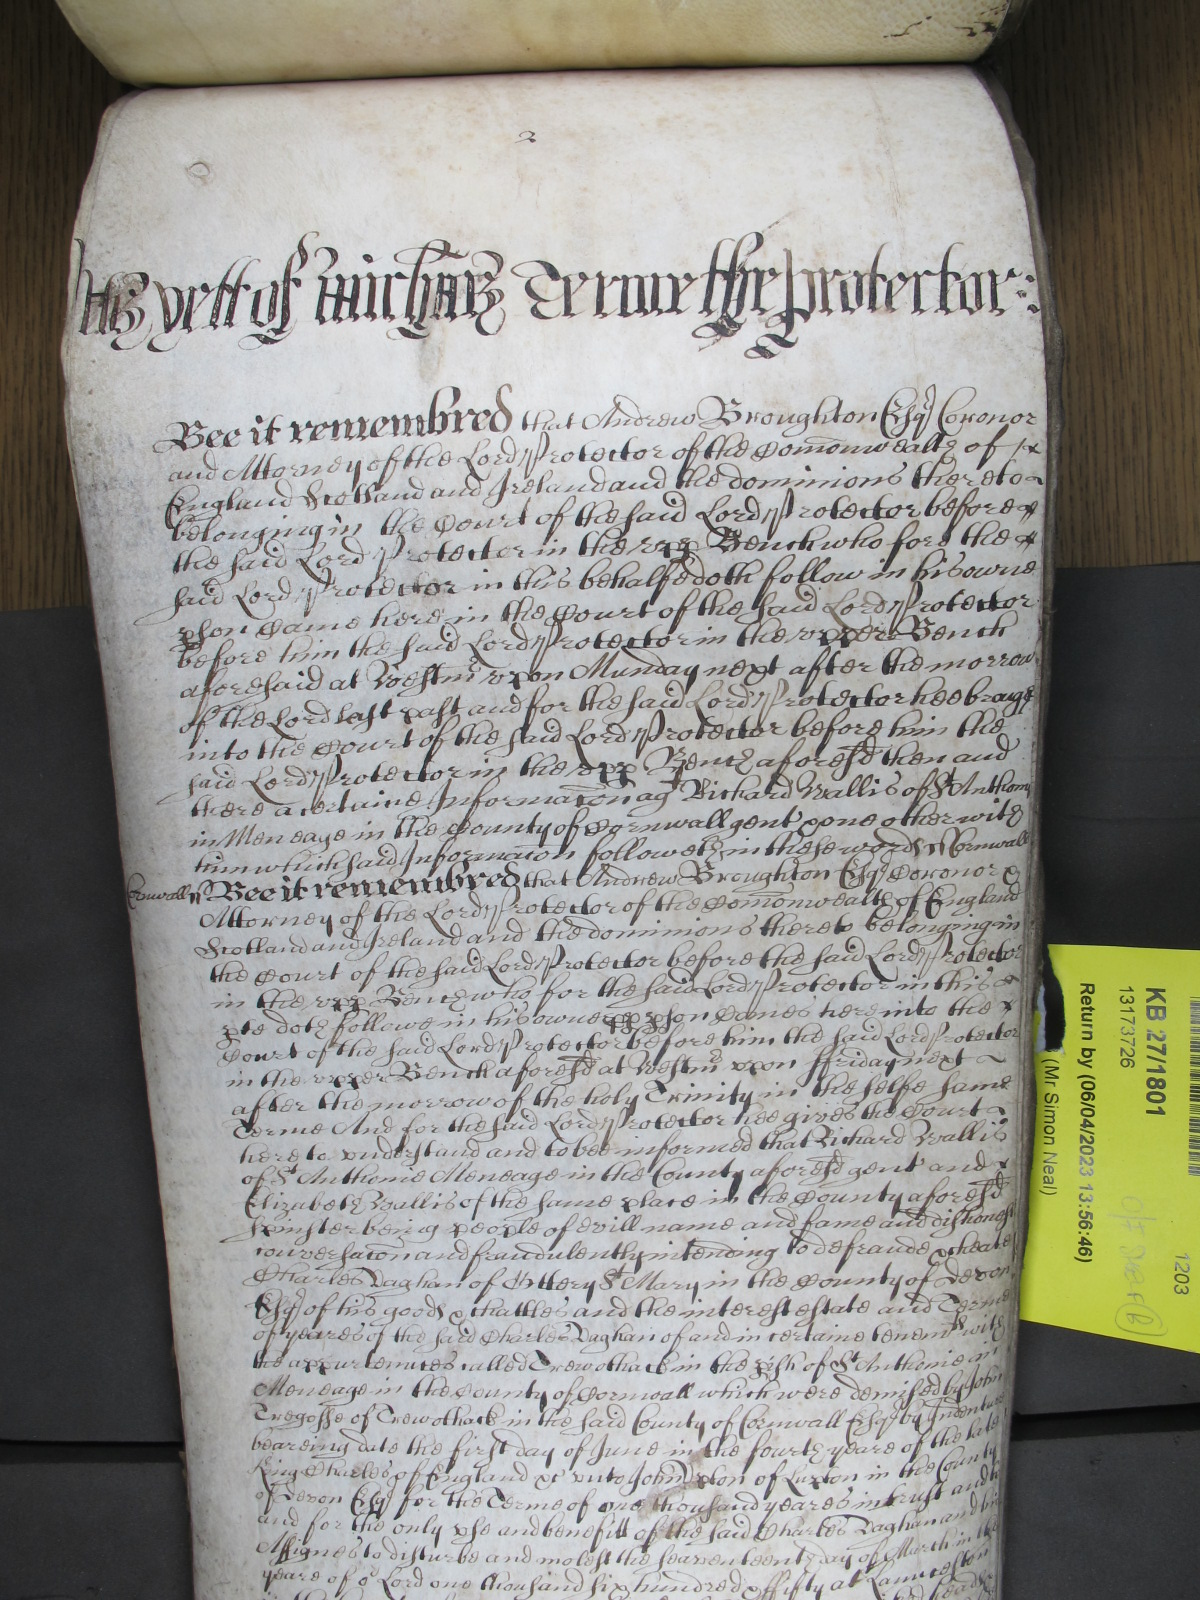 2
yett of Michaes Terme the Protector:
Bee it remembred that Andrew Broughton Esqr Coronor
and Attorney of the Lord Protector of the Comonwealth of
England Scotland and Ireland and the dominions thereto
belonging in the Court of the said Lord Protector before
the said Lord Protector in the upp Bench who for the
said Lord Protector in this behalfe doth follow in his owne
pson Came here in the Court of the said Lord Protector
before him the said Lord Protector in the upper Bench
aforesaid at Westmr upon Munday next after the morrow
of the Lord last past and for the said Lord Protector hee
into the Court of the said Lord Protector before him the
said Lord Protector in the upp Bench aforesd then and
there a certaine Informacon agt Richard Vallis of St Anthony
in Meneage in the County of Cornwall gent & one other with
him which said Informacon followeth in these words Cornwall
Cornwall ss Bee it remembred that Andrew Broughton Esqr Coronor &
Attorney of the Lord Protector of the Comonwealth of England
Scotland and Ireland and the dominions thereto belonging in
the Court of the said Lord Protector before the said Lord Protector
in the upp Bench who for the said Lord Protector in this
pte doth followe in his owne pson Comes here into the
Court of the said Lord Protector before him the said Lord Protector
in the upper Bench aforesd at Westmr upon ffriday next
after the morrow of the holy Trinity in the selfe same
Terme And for the said Lord Protector hee gives the Court
here to understand and to bee informed that Richard Vallis
of St Anthonie Meneage in the County aforesd gent and
Elizabeth Vallis of the same place in the County aforesd
Spinster being people of evill name and fame and dishonest
conversacon and fraudulently intending to defraude & cheate
Charles Vaghan of Ottery St Mary in the County of Devon
Esqr of his goods & chattles and the interest estate and Terme
of yeares of the said Charles Vaghan of and in certaine tenemts with
the appurtennces called Trewothack in the pish of St Anthonie in
Meneage in the County of Cornwall which were demised by John
Tregosse of Trewothack in the said County of Cornwall Esqr by Indenture
beareing date the first day of June in the fourth yeare of the late
King Charles of England &c unto John of in the County
of Devon Esqr for the Terme of one thousand yeares in trust and
and for the only use and benefitt of the said Charles Vaghan and his
Assignes to disturbe and molest the seaventeenth day of March in the
yeare of or Lord one thousand six hundred & fifty at Launceston
KB 27/1801
13173726
1203
Return by (06/04/2023 13:56:46)
(Mr Simon Neal)